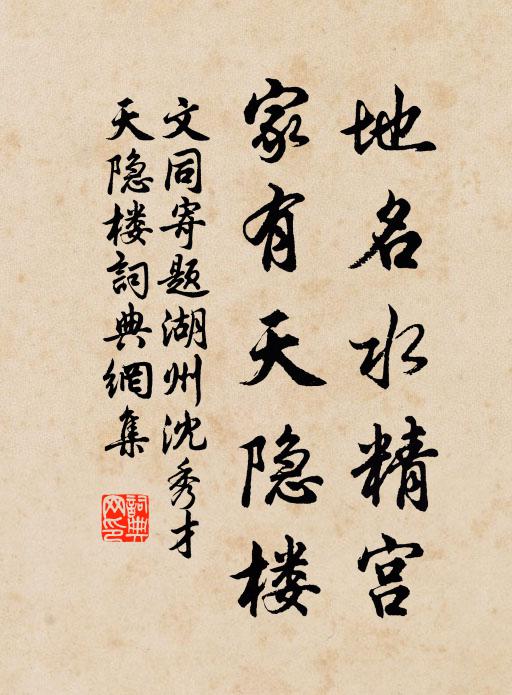 地名水精宫
家有天隐楼
文同寄题湖州沈秀才
天隐楼詞典網集
詞典網印